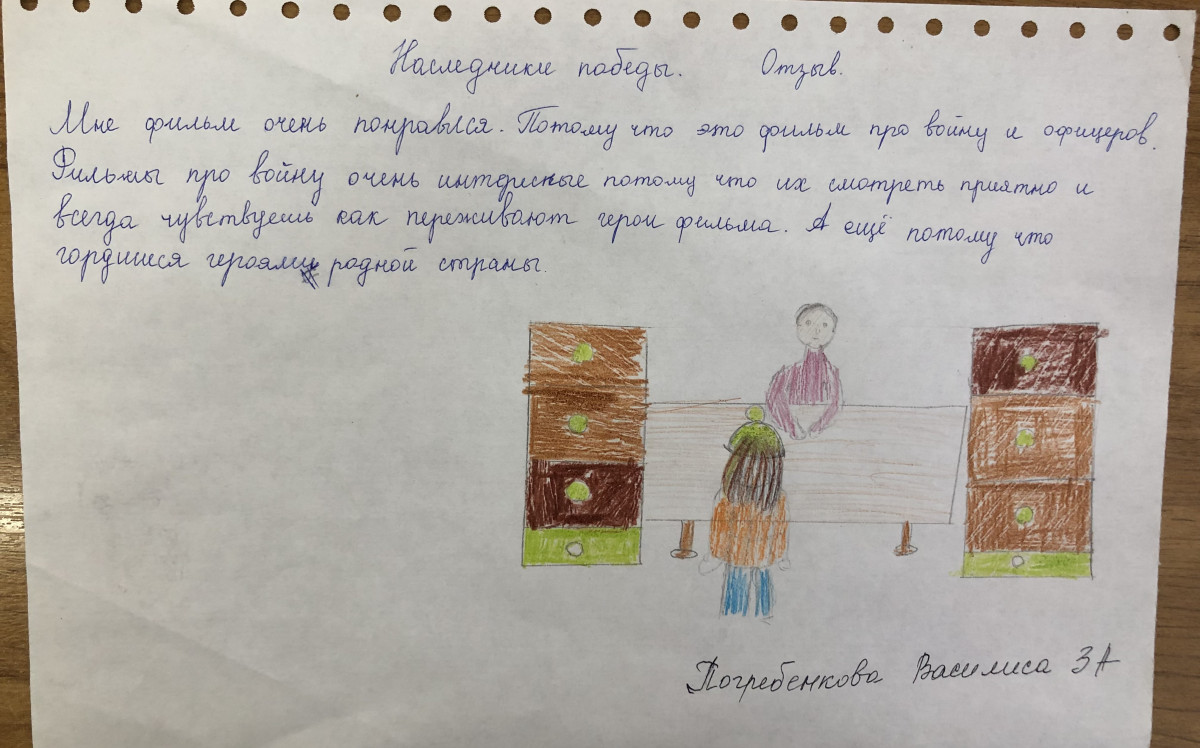 Наследники победы. Отзыв.
Мне фильм очень понравился. Потому что это фильм про войну и офицеров.
Фильмы про войну очень интересные потому что их смотреть приятно и
всегда чувствуешь как переживают герои фильма. А ещё потому что
гордишся героями родной страны.
Погребенкова Василиса 3 А